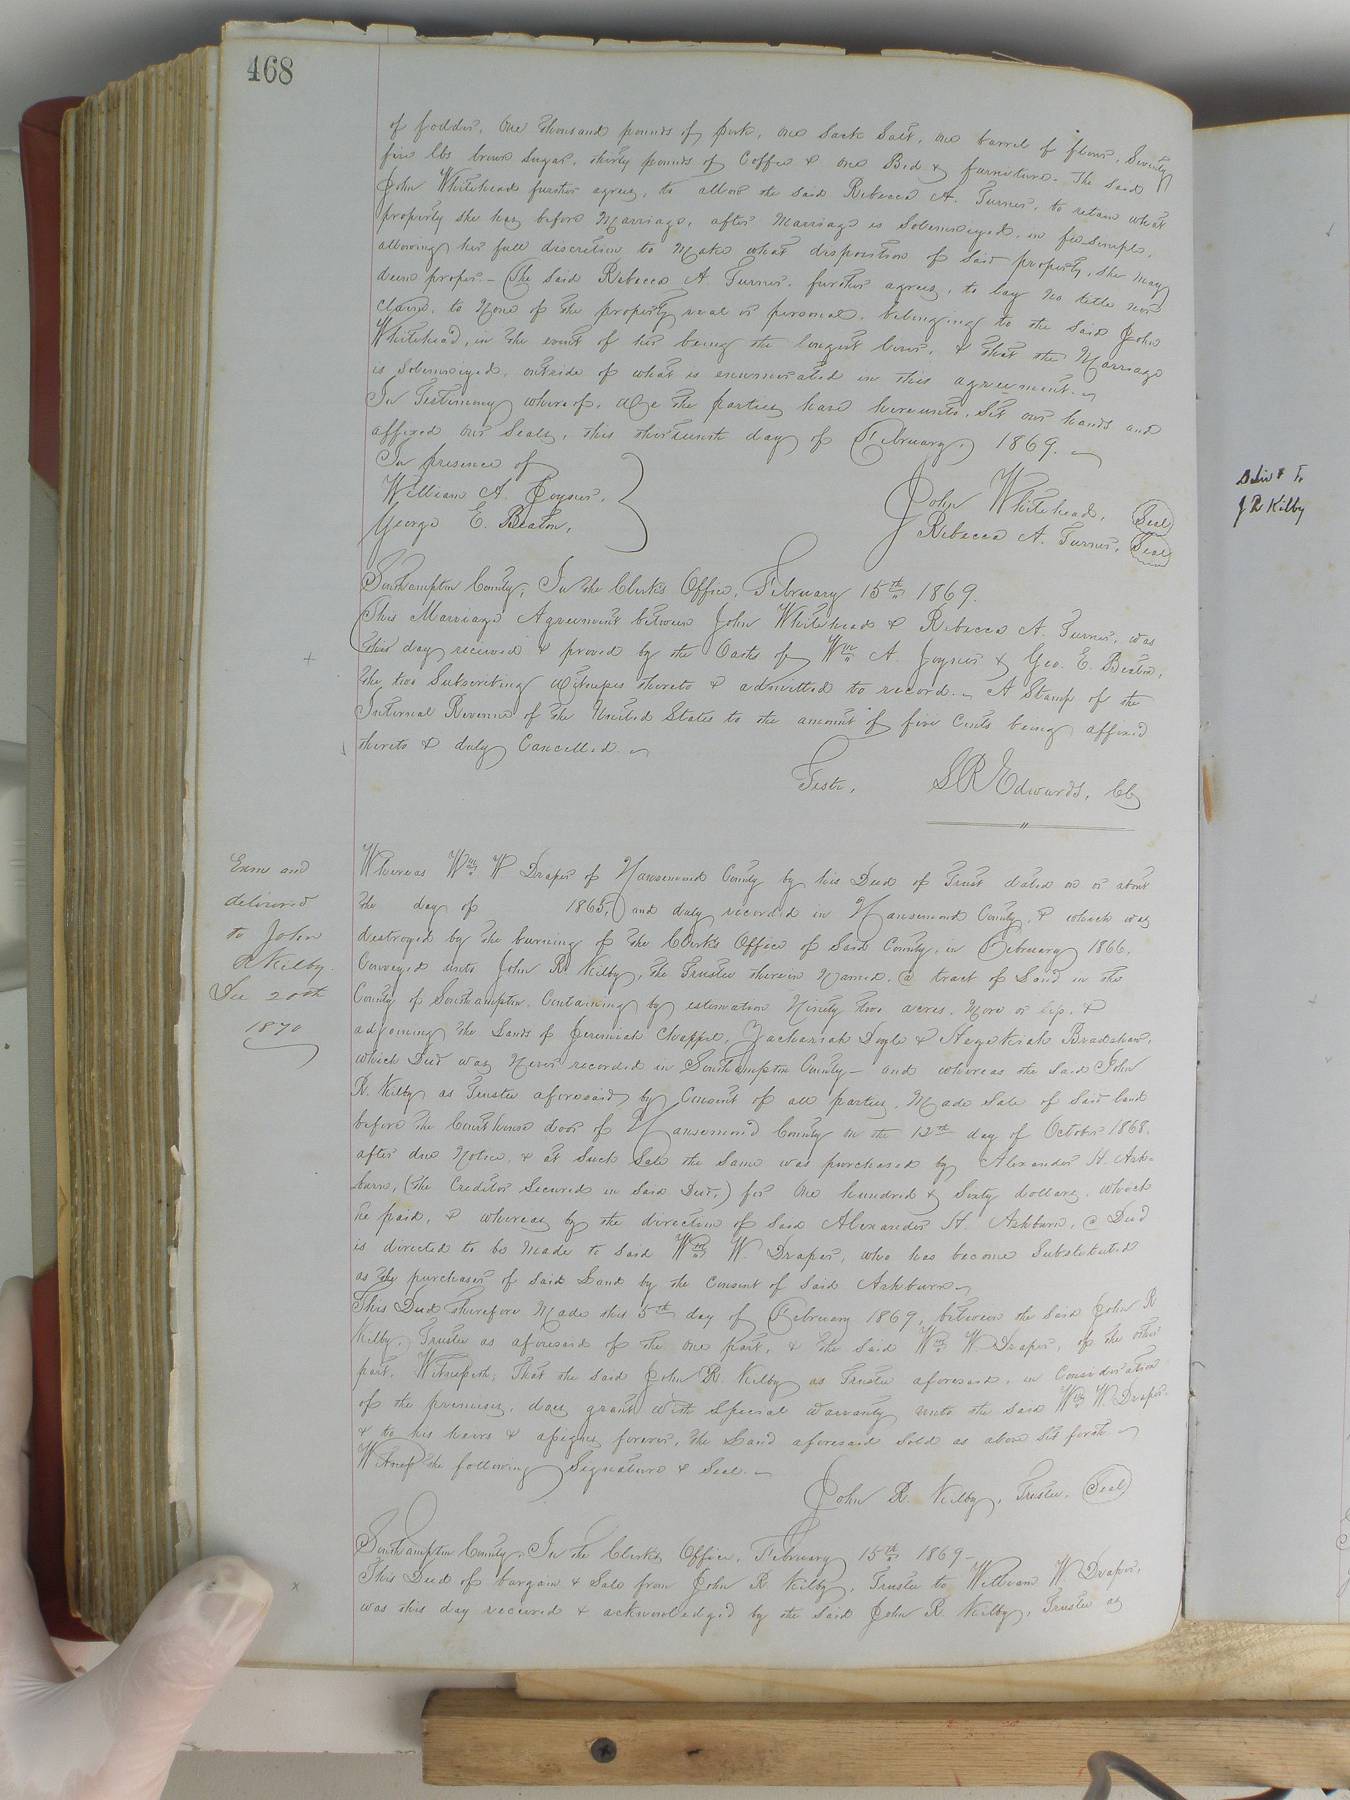 468
of fodder, One thousand pounds of pork, one Sack Salt, one barrel of flour, Seventy
five lbs brown Sugar, thirty pounds of Coffee & one Bed & furniture. The said
John Whitehead further agrees, to allow the said Rebecca A. Turner, to retain what
property she has before Marriage, after Marriage is Solemnized, in fee simple,
allowing her full discretion to Make what disposition of Said property, she may
deem proper. – The said Rebecca A. Turner, further agrees, to lay no title nor
claim, to None of the property real or personal, belonging to the said John
Whitehead, in the event of her being the longest liver, & that the Marriage
is Solemnized, outside of what is enumerated in this agreement.
In Testimony whereof, We the parties have hereunto, Set our hands and
affixed our Seals, this thirteenth day of February, 1869.
In presence of
William A. Joyner,
George E. Beaton,
John Whitehead, Seal
Rebecca A. Turner, Seal
Southampton County; In the Clerk's Office, February 15th 1869.
This Marriage Agreement between John Whitehead & Rebecca A. Turner, was
this day received & proved by the Oaths of Wm A. Joyner & Geo. E. Beaton,
the two Subscribing Witnesses thereto & admitted to record. – A Stamp of the
Internal Revenue of the United States to the amount of five Cents being affixed
thereto & duly Cancelled.
Teste, L R Edwards, CC
Exm and
delivered
to John
R Kilby.
Dec 20th
1870
Whereas Wm W Draper of Nansemond County by his Deed of Trust dated on or about
the day of 1865, and duly recorded in Nansemond County, & which was
destroyed by the burning of the Clerk's Office of Said County, in February 1866,
Conveyed unto John R. Kilby, the Trustee therein Named, a tract of Land in the
County of Southampton, Containing by estimation Ninety two acres, More or less, &
adjoining the Lands of Jeremiah Chappel, Zachariah Doyle & Hezekiah Bradshaw,
which Deed was Never recorded in Southampton County – and whereas the said John
R. Kilby as Trustee aforesaid, by Consent of all parties, Made Sale of Said land
before the Courthouse door of Nansemond County on the 12th day of October 1868,
after due Notice, & at Such Sale the Same was purchased by Alexander H. Ash-
burn, (the Creditor Secured in Said Deed,) for One hundred & Sixty dollars, which
he paid, & whereas by the direction of Said Alexander H. Ashburn, a Deed
is directed to be Made to Said Wm W. Draper, who has become Substituted
as the purchaser of Said Land by the Consent of Said Ashburn
This Deed therefore Made this 5th day of February 1869, between the Said John R
Kilby, Trustee as aforesaid of the one part, & the Said Wm W. Draper, of the other
part, Witnesseth: That the said John R. Kilby as Trustee aforesaid, in Consideration
of the premises, does grant with Special warranty unto the Said Wm W. Draper
& to his heirs & assigns forever, the Land aforesaid Sold as above Set forth
Witness the following Signature & Seal.
John R. Kilby, Trustee, Seal
Southampton County; In the Clerk's Office, February 15th 1869 –
This Deed of bargain & Sale from John R. Kilby, Trustee to William W Draper,
was this day received & acknowledged by the Said John R. Kilby, Trustee as
Deliv'd To
J R Kilby